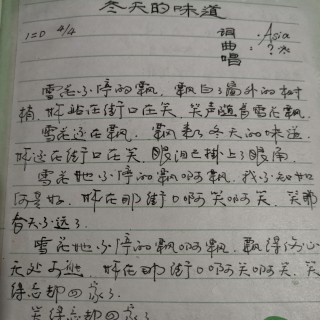 冬天的味道
1=D 4/4
词
曲 Asia
唱
雪花不停的飘，飘白了窗外的树
梢，你站在街口在笑，笑声随着雪花飘。
雪花还在飘，飘来了冬天的味道，
你还在街口在笑，眼泪已掛上了眼角
雪花她不停的飘啊飘，我不知如
何是好，你在那街口啊笑啊笑，笑那
春天不远了
雪花她不停的飘啊飘，飘得伤心
无处可逃，你在那街口啊笑啊笑，笑
得忘却回家了
笑得忘却回家了